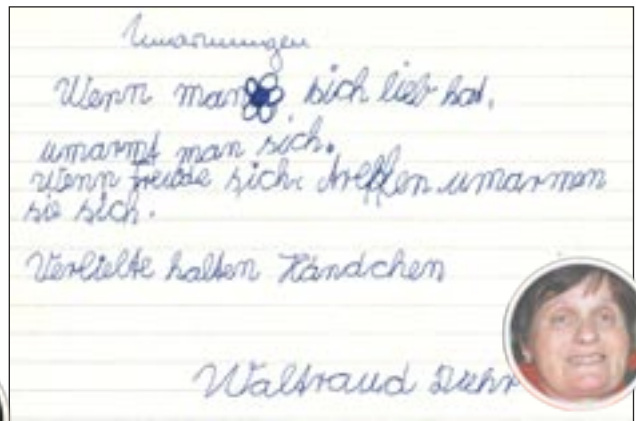 Umarmungen
Wenn man sich lieb hat,
umarmt man sich.
Wenn freude sich treffen umarmen
sie sich.
Verliebte halten Händchen
Waltraud